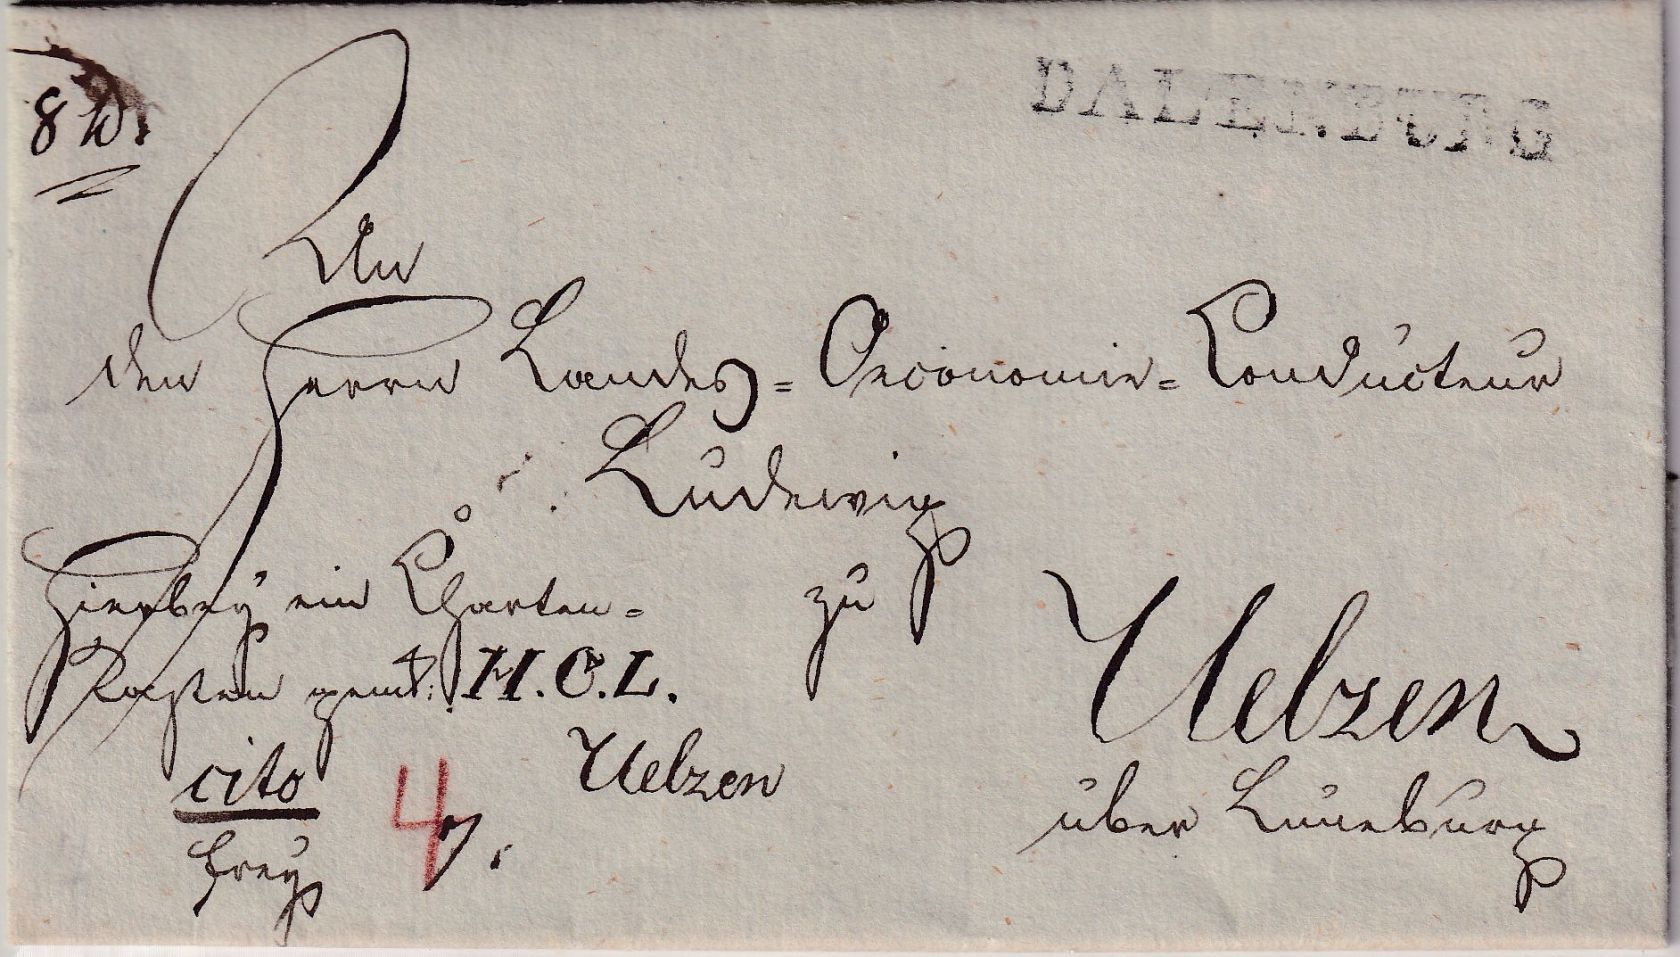 8 lb.
DALENBURG
An
den Herrn Landes=Oeconomie=Conducteur
Ludewig
zu
Uelzen
über Lüneburg
Hierbey ein Charten=
Kasten gemk: H.C.L.
Uelzen
cito
frey
4